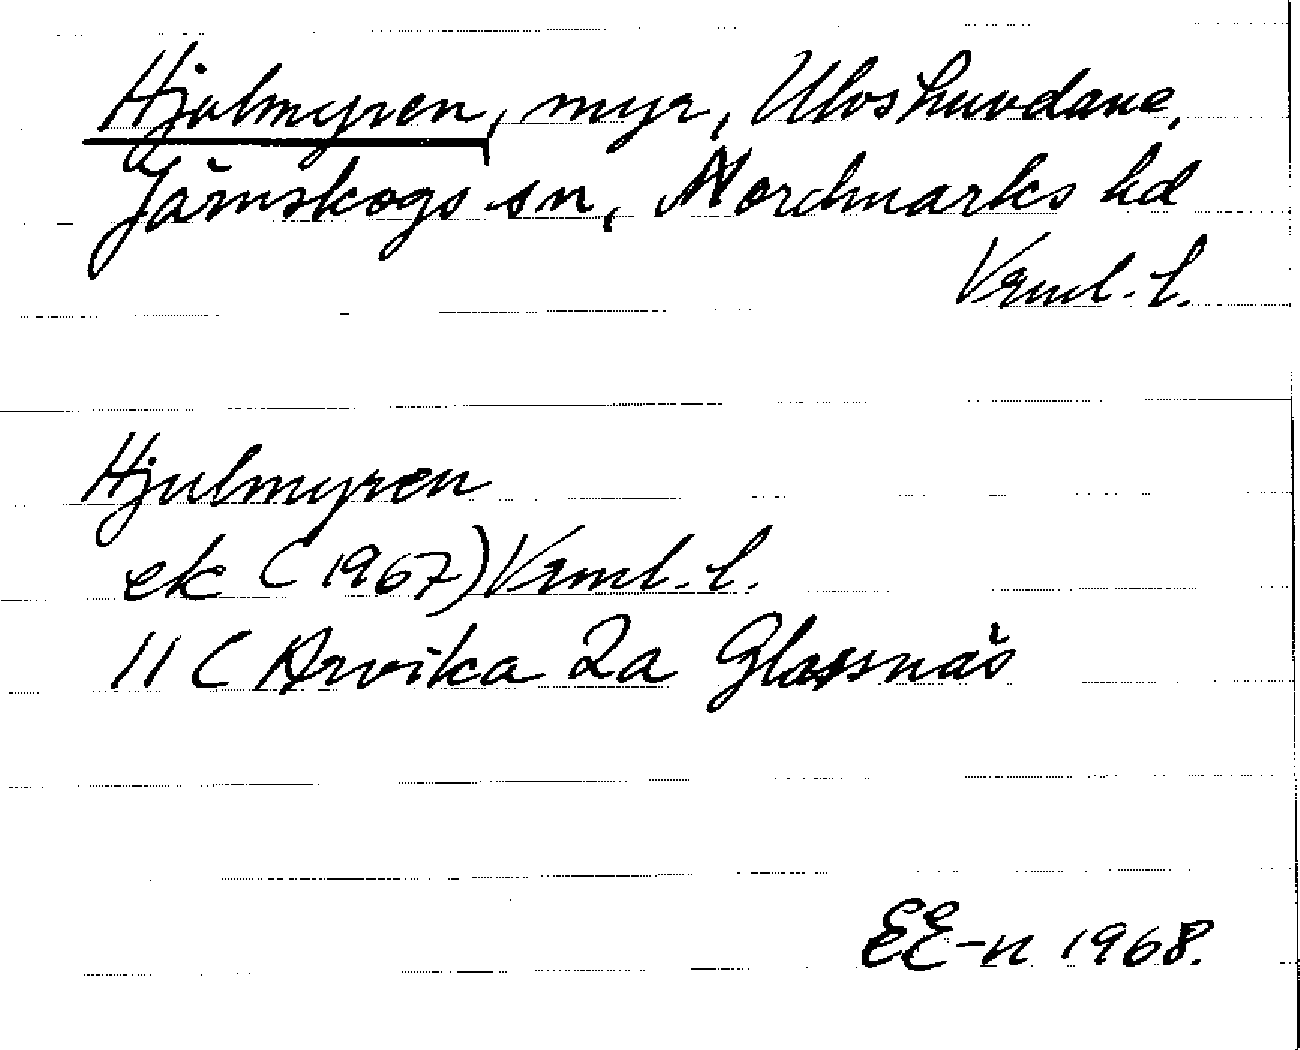 Hjulmyren, myr, Uloshuvdane,
Järnskogs sn, Nordmarks hd
Vrml. l.
Hjulmyren
ek (1967) Vrml. l.
11 C Arvika 2a Glassnäs
EE-n 1968.